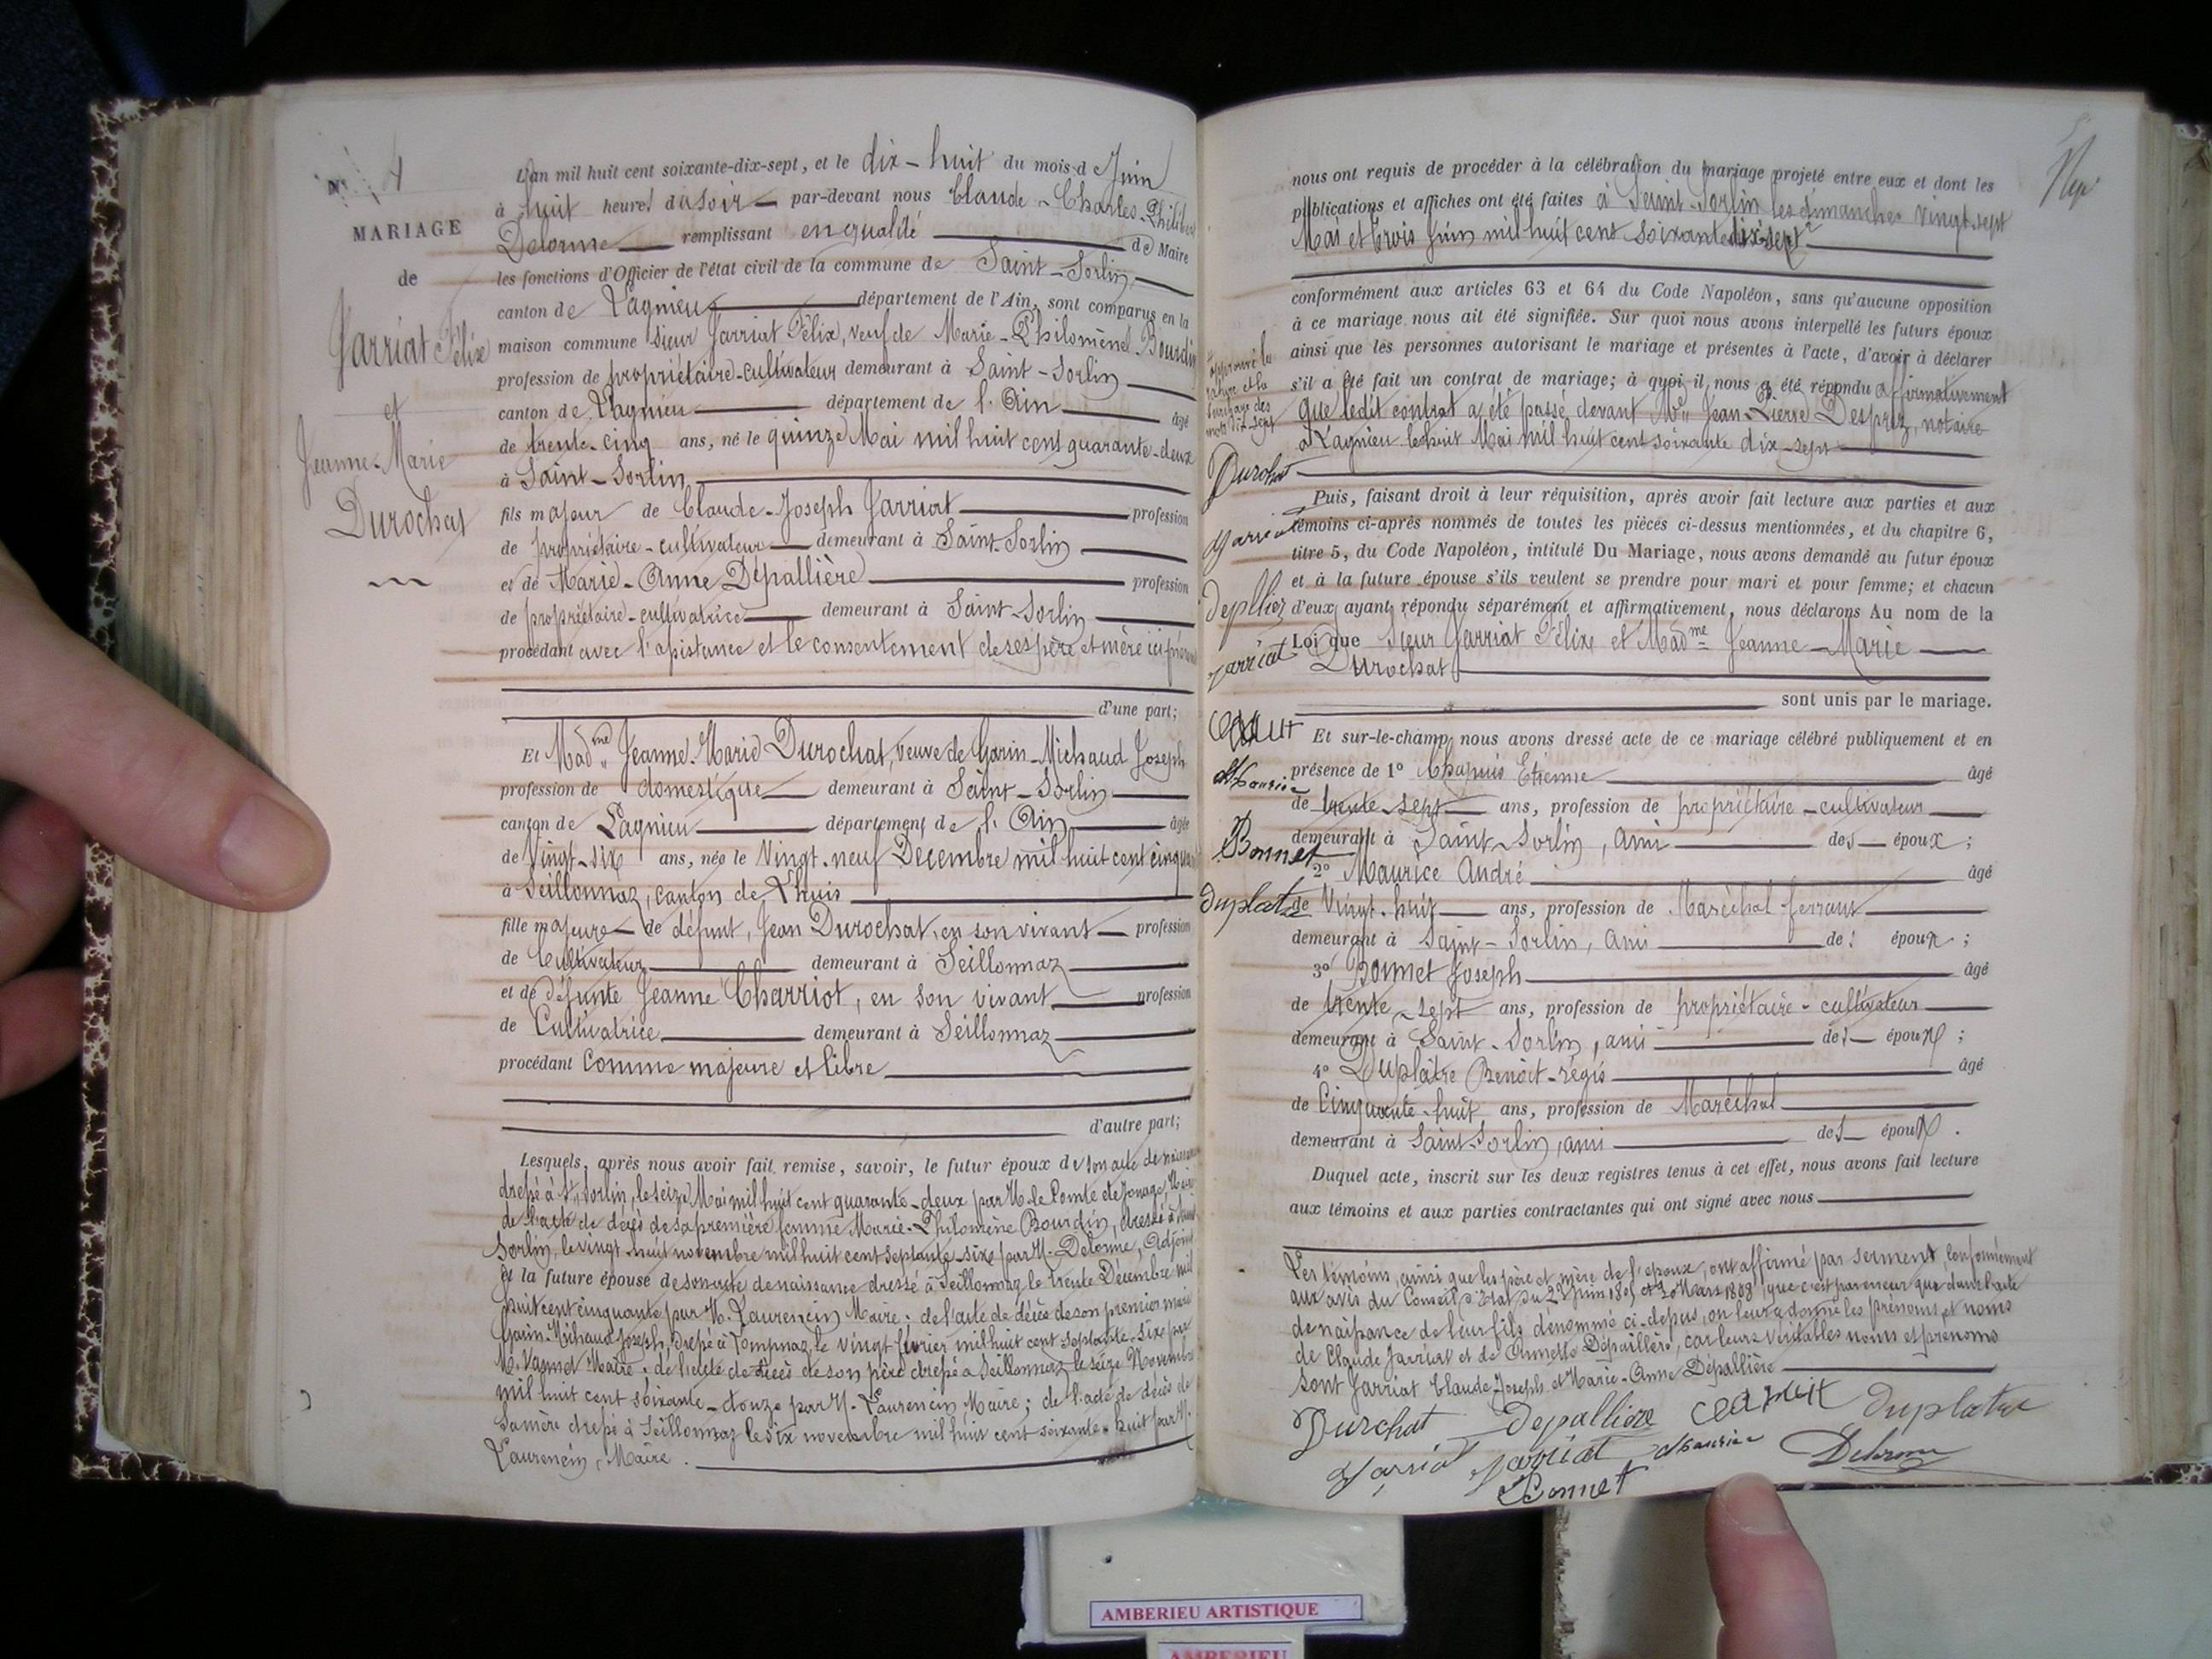 N° 4
MARIAGE
de
Jarriat Félix
et
Jeanne-Marie
Durochat
L'an mil huit cent soixante-dix-sept, et le dix-huit du mois d Juin
à huit heures du soir par-devant nous Claude-Charles-Philibert
Delorme remplissant en qualité de Maire
les fonctions d'Officier de l'état civil de la commune de Saint-Sorlin
canton de Lagnieu département de l'Ain, sont comparus en la
maison commune Sieur Jarriat Félix, veuf de Marie-Philomène Bourdin
profession de propriétaire-cultivateur demeurant à Saint-Sorlin
canton de Lagnieu département de l'Ain âgé
de trente-cinq ans, né le quinze Mai mil huit cent quarante-deux
à Saint-Sorlin
fils majeur de Claude-Joseph Jarriat profession
de propriétaire-cultivateur demeurant à Saint-Sorlin
et de Marie-Anne Dépallière profession
de propriétaire-cultivatrice demeurant à Saint-Sorlin
procédant avec l'assistance et le consentement de ses père et mère ici
d'une part;
Et Madme Jeanne-Marie Durochat, veuve de Garin-Michaud Joseph
profession de domestique demeurant à Saint-Sorlin
canton de Lagnieu département de l'Ain âgée
de Vingt-six ans, née le Vingt-neuf Décembre mil huit cent cinquante
à Seillonnaz, canton de Lhuis
fille majeure de défunt, Jean Durochat, en son vivant profession
de Cultivateur demeurant à Seillonnaz
et de défunte Jeanne Charriot, en son vivant profession
de Cultivatrice demeurant à Seillonnaz
procédant comme majeure et libre
d'autre part;
Lesquels, après nous avoir fait remise, savoir, le futur époux de son acte de naissance
dressé à St Sorlin, le seize Mai mil huit cent quarante-deux par M. le Comte de Jonage,
de l'acte de décès de sa première femme Marie-Philomène Bourdin, dressé à Saint
Sorlin, le vingt-huit novembre mil huit cent septante-six par M. Delorme, Adjoint
Et la future épouse de son acte de naissance dressé à Seillonnaz le trente Décembre mil
huit cent cinquante par M. Laurencin Maire; de l'acte de décès de son premier mari
Garin-Michaud Joseph, dressé à le vingt février mil huit cent septante-six par
M. Vannet Maire; de l'acte de décès de son père dressé à Seillonnaz le seize Novembre
mil huit cent soixante-douze par M. Laurencin Maire; de l'acte de décès de
sa mère dressé à Seillonnaz le six novembre mil huit cent soixante-huit par M.
Laurencin, Maire.
nous ont requis de procéder à la célébration du mariage projeté entre eux et dont les
publications et affiches ont été faites à Saint-Sorlin les dimanches vingt-sept
Mai et trois Juin mil huit cent soixante dix-sept
conformément aux articles 63 et 64 du Code Napoléon, sans qu'aucune opposition
à ce mariage nous ait été signifiée. Sur quoi nous avons interpellé les futurs époux
ainsi que les personnes autorisant le mariage et présentes à l'acte, d'avoir à déclarer
s'il a été fait un contrat de mariage; à quoi il nous a été répondu affirmativement
que ledit contrat a été passé devant Me Jean-Pierre Desprez, notaire
à Lagnieu le huit Mai mil huit cent soixante dix-sept
approuvé la
rature et la
surcharge des
mots dix-sept
Durochat
Jarriat
Jarriat
Bonnet
duplatre
Puis, faisant droit à leur réquisition, après avoir fait lecture aux parties et aux
témoins ci-après nommés de toutes les pièces ci-dessus mentionnées, et du chapitre 6,
titre 5, du Code Napoléon, intitulé Du Mariage, nous avons demandé au futur époux
et à la future épouse s'ils veulent se prendre pour mari et pour femme; et chacun
d'eux ayant répondu séparément et affirmativement, nous déclarons Au nom de la
Loi que Sieur Jarriat Félix et Madme Jeanne-Marie
Durochat
sont unis par le mariage.
Et sur-le-champ nous avons dressé acte de ce mariage célébré publiquement et en
présence de 1° Chapuis Etienne âgé
de trente-sept ans, profession de propriétaire-cultivateur
demeurant à Saint-Sorlin, ami des époux;
2° Maurice André âgé
de Vingt-huit ans, profession de Maréchal-ferrant
demeurant à Saint-Sorlin, ami des époux;
3° Bonnet Joseph âgé
de trente-sept ans, profession de propriétaire-cultivateur
demeurant à Saint-Sorlin, ami des époux;
4° Duplâtre Benoît-régis âgé
de Cinquante-huit ans, profession de Maréchal
demeurant à Saint-Sorlin, ami des époux.
Duquel acte, inscrit sur les deux registres tenus à cet effet, nous avons fait lecture
aux témoins et aux parties contractantes qui ont signé avec nous
Les témoins, ainsi que les père et mère de l'époux, ont affirmé par serment, conformément
aux avis du Conseil d'Etat du Juin 1805 et Mars 1808, que c'est par erreur que dans l'acte
de naissance de leur fils dénommé ci-dessus, on leur a donné les prénoms et noms
de Claude Jarriat et de Annette Dépaillère, car leurs véritables noms et prénoms
sont Jarriat Claude-Joseph et Marie-Anne Dépallière
Durchat depalliere duplatre
Jarriat Jarriat Maurice Delorme
Bonnet
AMBERIEU ARTISTIQUE
AMBERIEU